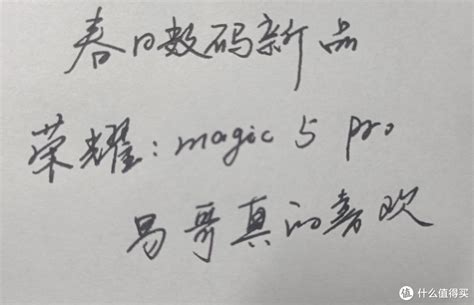 春日数码新品
荣耀：magic 5 pro
易哥真的喜欢
值 什么值得买